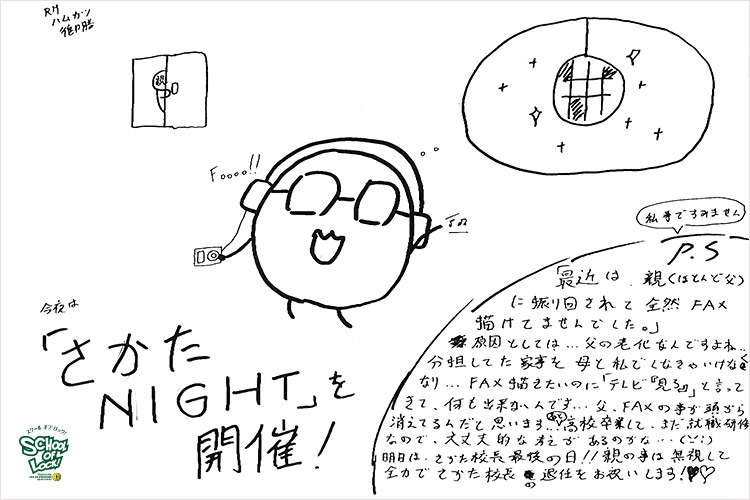 RN
ハムカツ
御膳
親
Foooo!!
私事ですみません
P.S
「最近は、親(ほとんど父)
に振り回されて全然FAX
描けてませんでした。」
原因としては…父の老化なんですよね…
分担してた家事を母と私でしなきゃいけなく
なり…FAX描きたいのに「テレビ『見るぅ』と言って
きて、何も出来ないんです…父、FAXの事が頭から
消えてるんだと思います…高校卒業して、まだ就職研修
なので、大丈夫的な考えがあるのかな…
明日は、さかた校長最後の日!!親の事は無視して
全力でさかた校長の退任をお祝いします!
今夜は
「さかた
NIGHT」を
開催!
スクール オブ ロック!
SCHOOL
OF
LOCK!